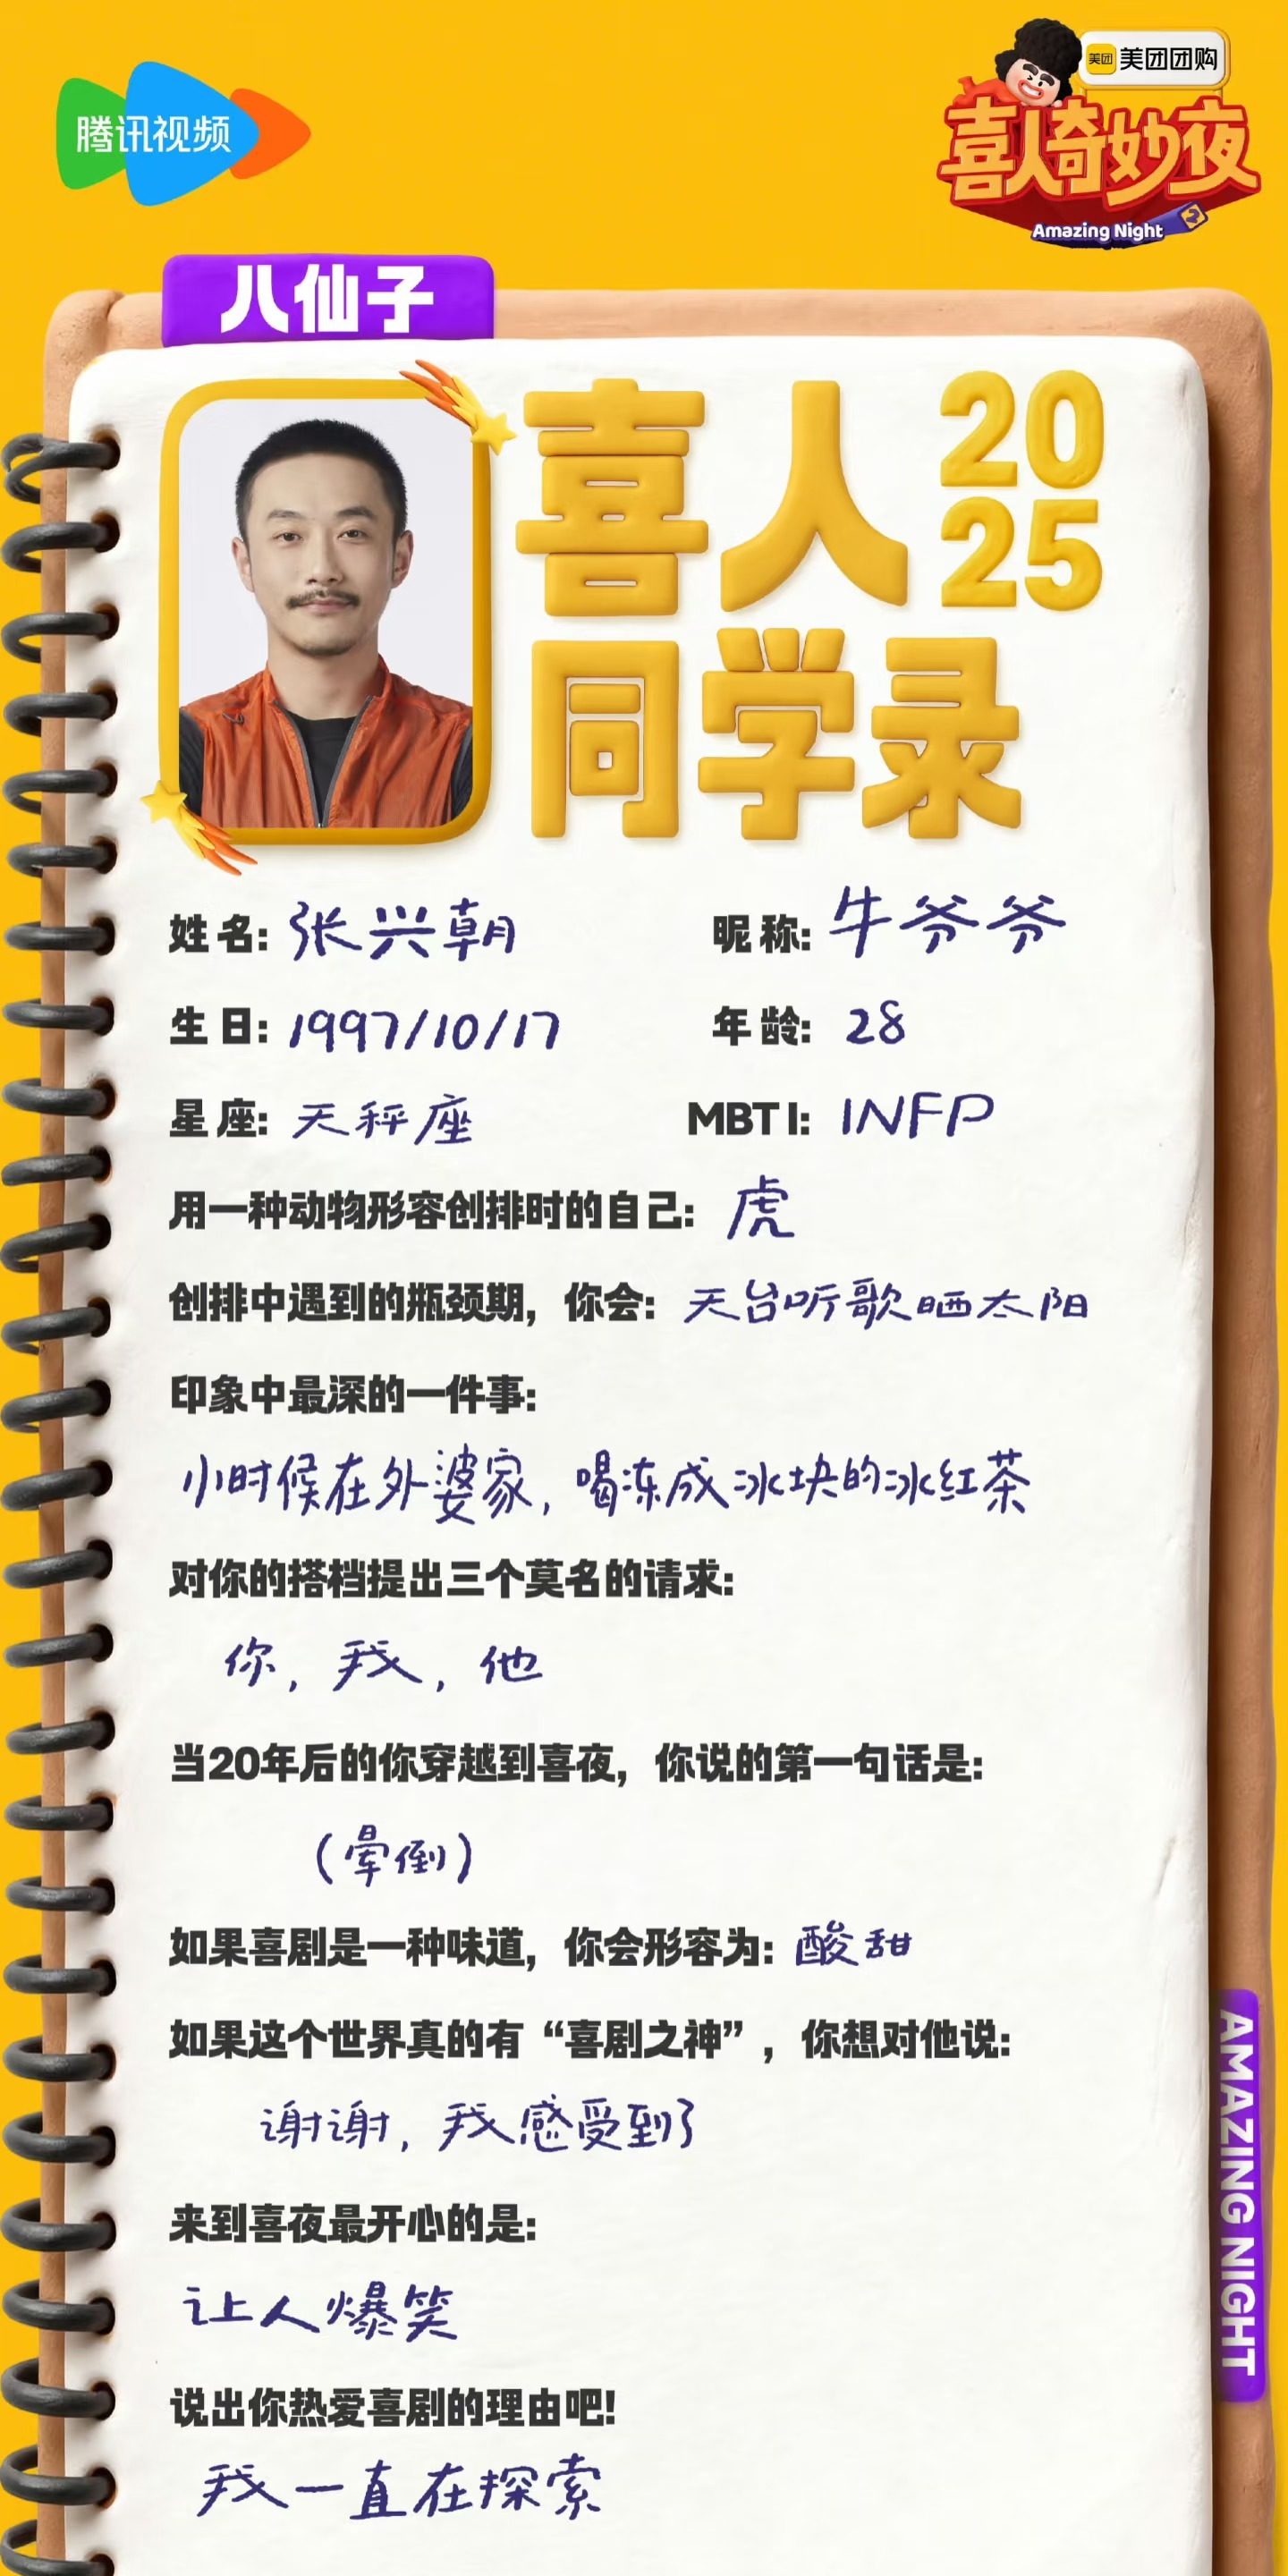 腾讯视频
美团 美团团购
喜人奇妙夜
Amazing Night 2
八仙子
喜人 2025
同学录
姓名: 张兴朝 昵称: 牛爷爷
生日: 1997/10/17 年龄: 28
星座: 天秤座 MBTI: INFP
用一种动物形容创排时的自己: 虎
创排中遇到的瓶颈期，你会: 天台听歌晒太阳
印象中最深的一件事:
小时候在外婆家，喝冻成冰块的冰红茶
对你的搭档提出三个莫名的请求:
你，我，他
当20年后的你穿越到喜夜，你说的第一句话是:
（晕倒）
如果喜剧是一种味道，你会形容为: 酸甜
如果这个世界真的有“喜剧之神”，你想对他说:
谢谢，我感受到了
来到喜夜最开心的是:
让人爆笑
说出你热爱喜剧的理由吧!
我一直在探索
AMAZING NIGHT